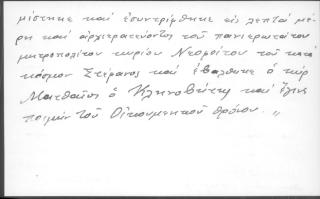 μίστηκε καὶ ἐσυντρίφθηκε εἰς λεπτὰ μέ-
ρη καὶ ἀρχιερατεύοντος τοῦ πανιερωτάτου
μητροπολίτου κυρίου Νεοφύτου τοῦ κατὰ
κόσμον Στέφανος καὶ ἐβαλθηκε ὁ κὺρ
Ματθαῖος ὁ καὶ ἔγινε
ποιμὴν τοῦ Οἰκουμενικοῦ θρόνου. "